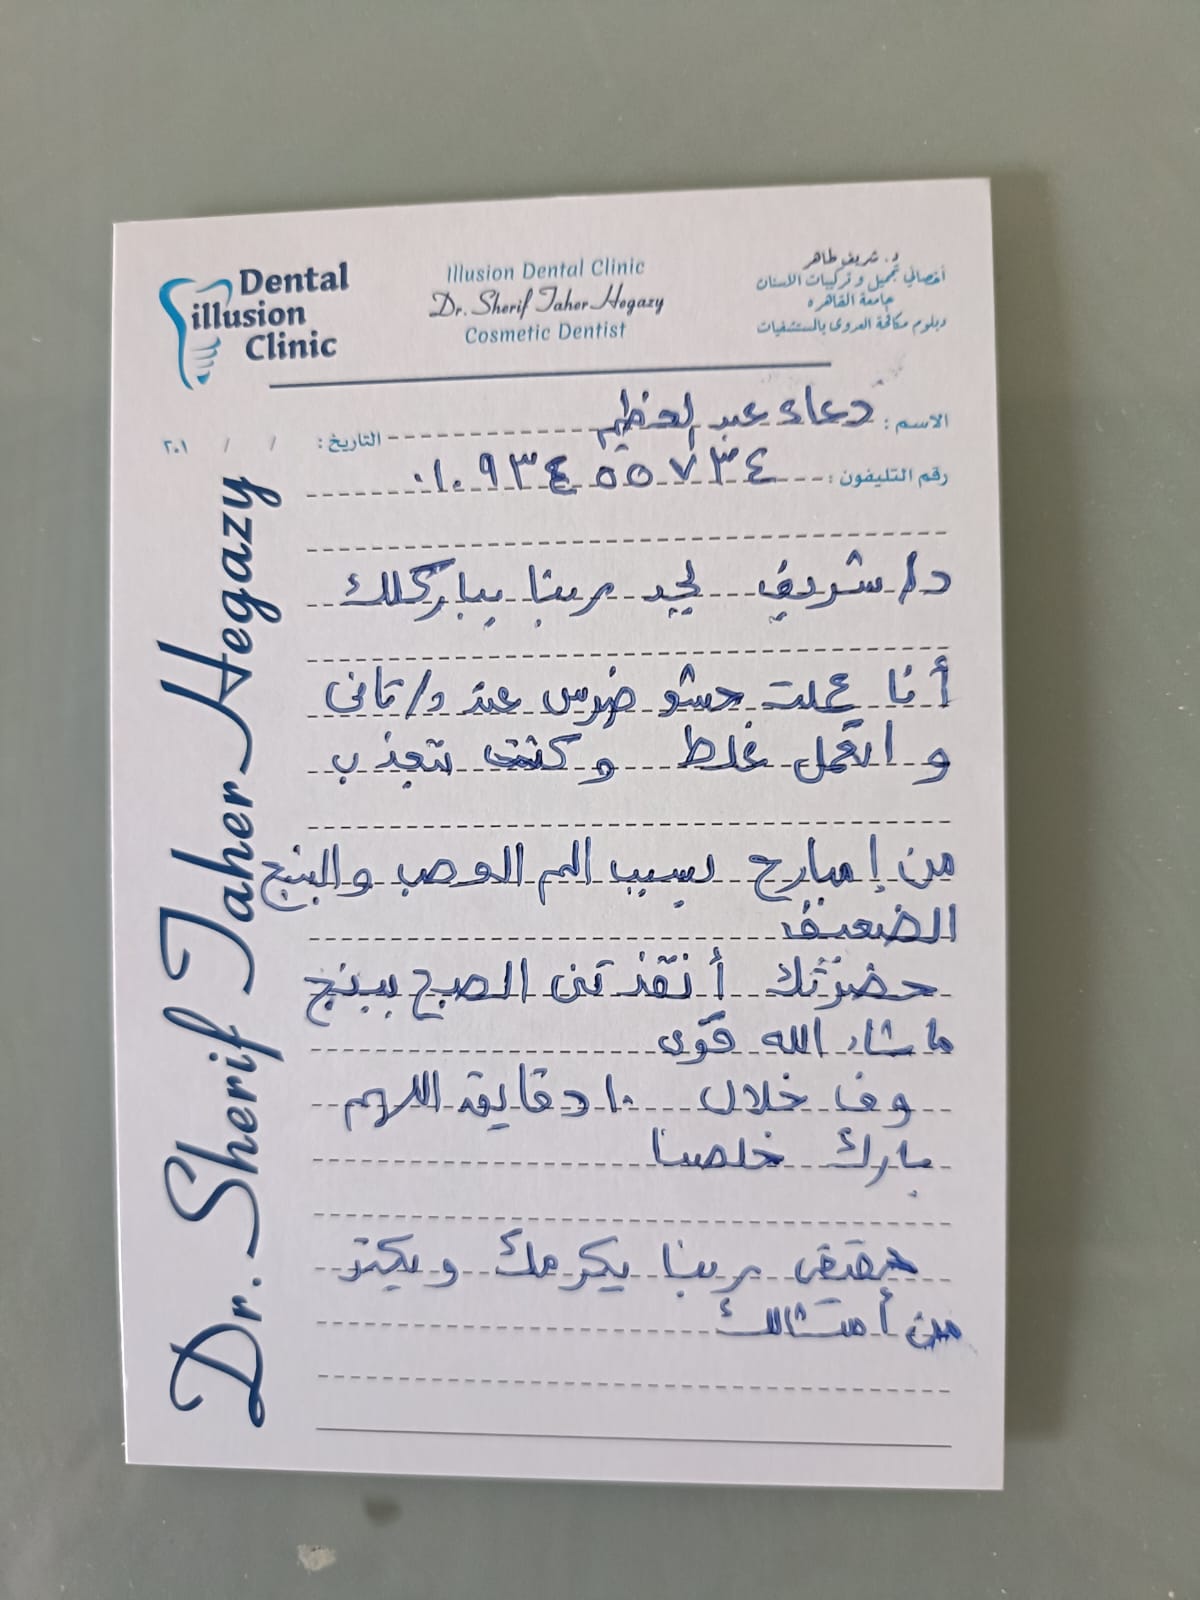 Dental
illusion
Clinic
Illusion Dental Clinic
Dr. Sherif Taher Hegazy
Cosmetic Dentist
د. شريف طاهر
أخصائي تجميل و تركيبات الاسنان
جامعة القاهره
دبلوم مكافحة العدوى بالمستشفيات
الاسم : دعاء عبد العظيم
التاريخ : / / ٢٠١
رقم التليفون : ٠١٠٩٣٤٥٥٧٣٤
د/ شريف لجد ربنا يباركلك
أنا عملت حشو ضرس عند د/ تانى
و اتعمل غلط وكنت بتعذب
من إمبارح بسبب الم العصب والبنج
الضعيف
حضرتك أنقذتنى الصبح ببنج
ماشاء الله قوى
وف خلال ١٠ دقايق اللهم
بارك خلصنا
حقيقى ربنا يكرمك ويكتر
من أمثالك
Dr. Sherif Taher Hegazy